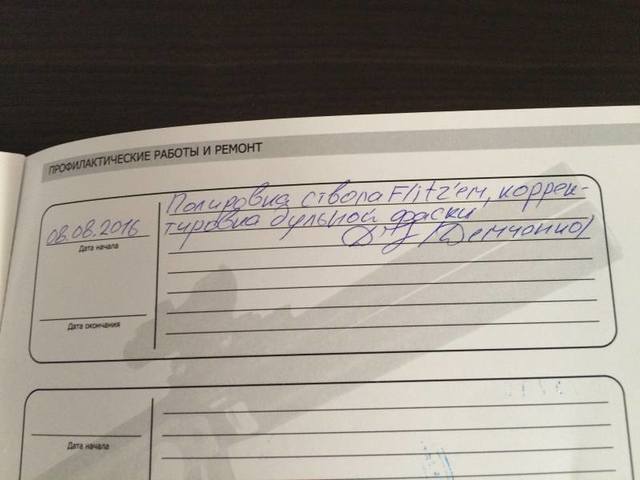 ПРОФИЛАКТИЧЕСКИЕ РАБОТЫ И РЕМОНТ
08.08.2016
Дата начала
Полировка ствола Flitz'ем, коррек-
тировка дульной фаски
(Демчанко)
Дата окончания
Дата начала